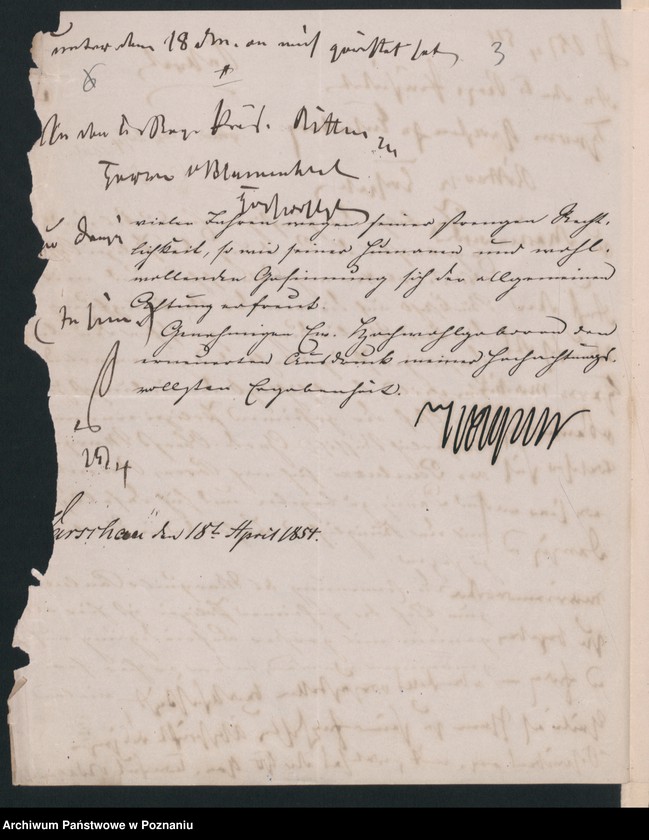 unter dem 18 d. M. an mich gerichtet hat, 3
An den K. Reg. Präs. Ritter
Herrn v Blumenthal
Hochwohlg
vielen Jahren wegen seiner strengen Recht-
lichkeit, so wie seiner humanen und wohl-
wollenden Gesinnung sich der allgemeinen
Achtung erfreut.
Genehmigen Ew. Hochwohlgeboren den
erneuerten Ausdruck meiner hochachtungs-
vollsten Ergebenheit.
Wagner
Warschau den 18t April 1854.
Archiwum Państwowe w Poznaniu